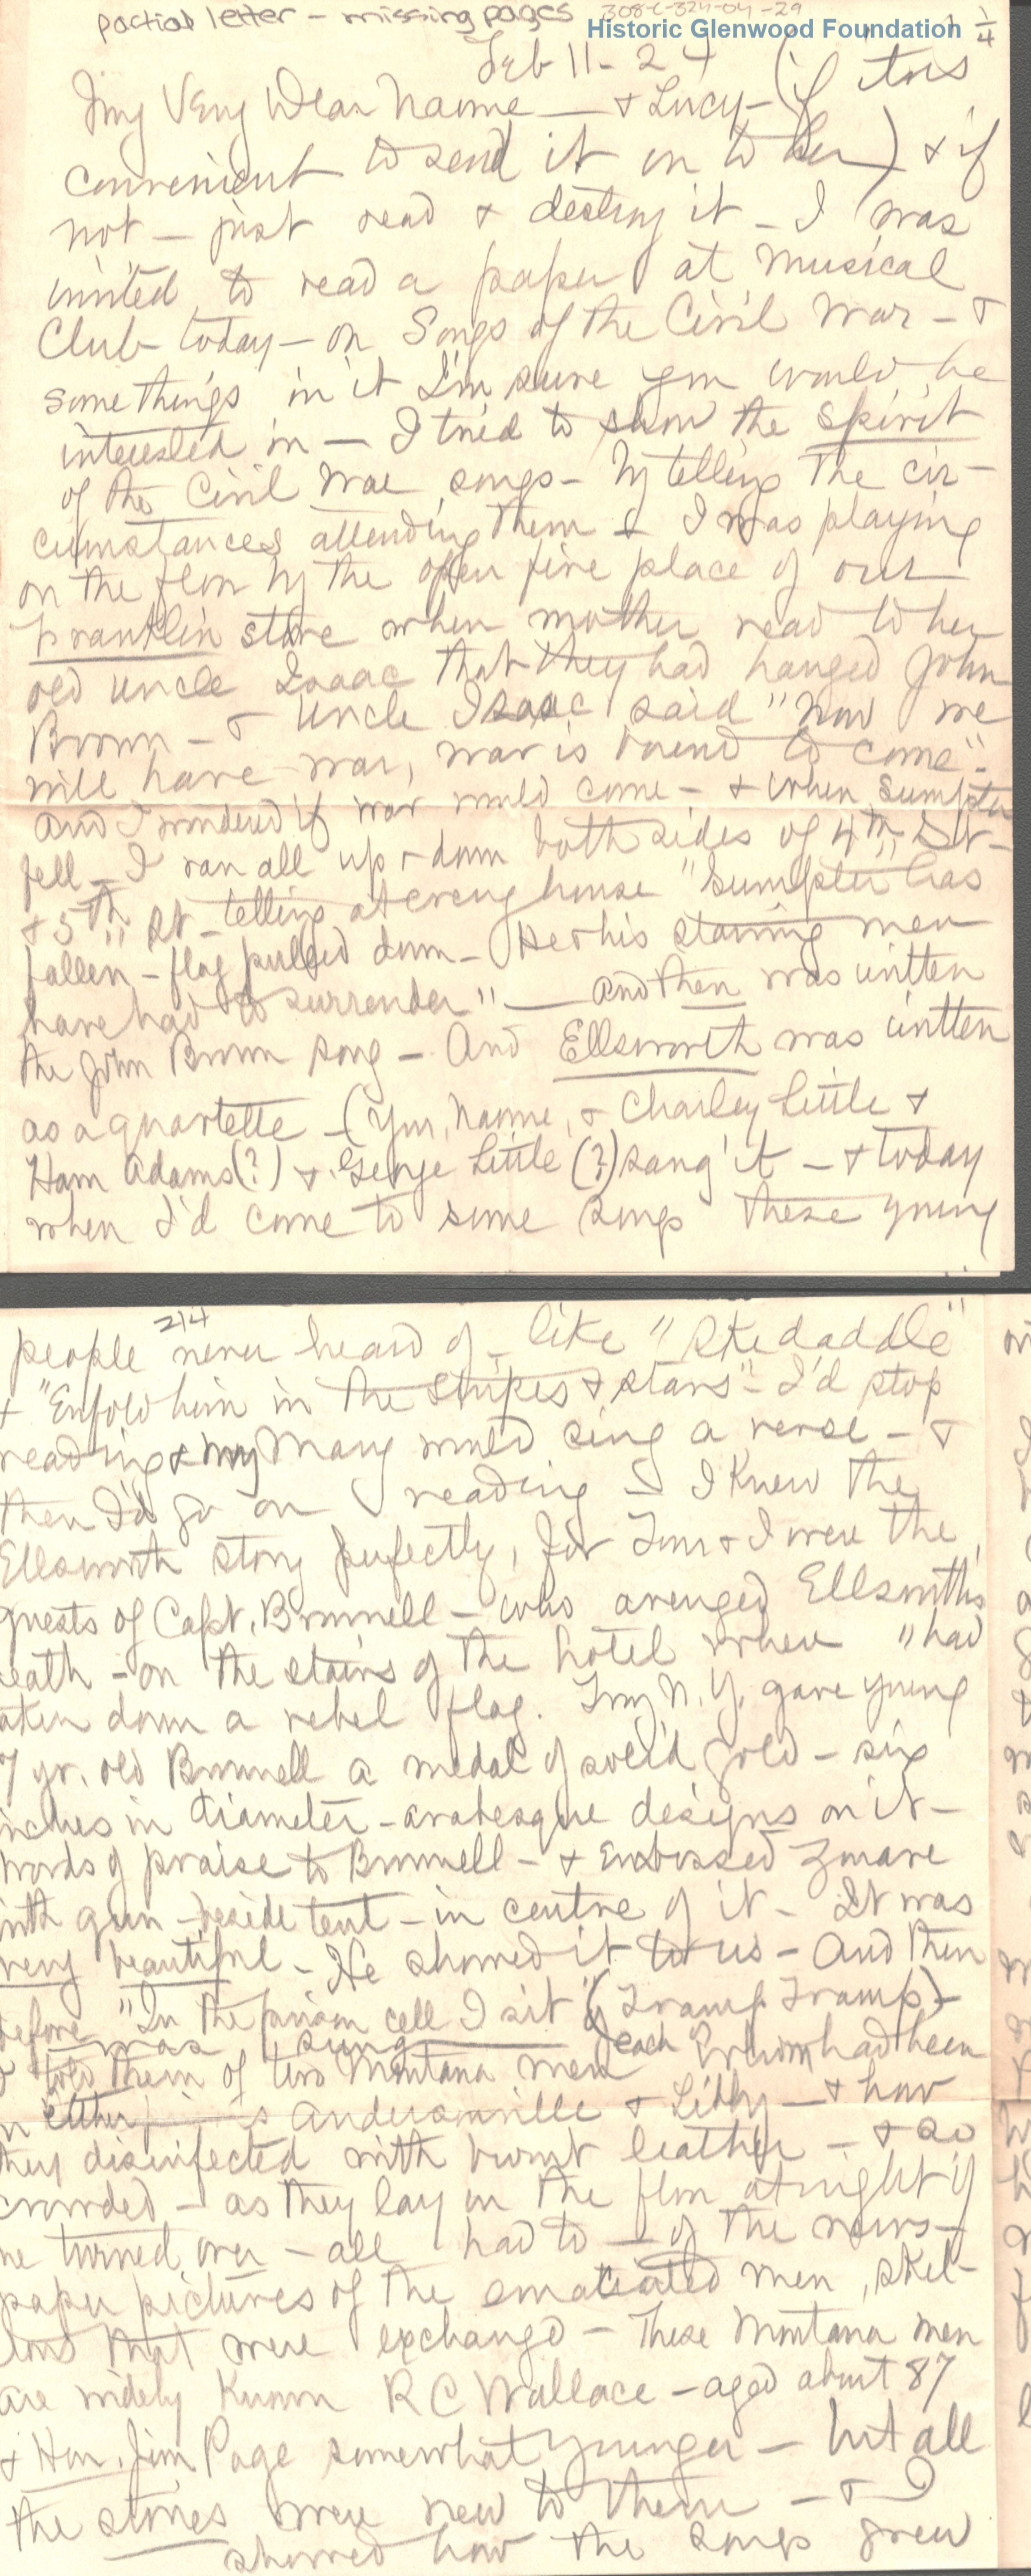 partial letter - missing pages 308-C-324-04-29
Historic Glenwood Foundation 1/4
Feb 11 - 24 (if it is
My Very Dear Nanme — & Lucy -
convenient to send it on to her) & if
not — just read & destroy it - I was
invited to read a paper at Musical
Club today - on Songs of the Civil War - &
some things in it I'm sure you would be
interested in — I tried to show the spirit
of the Civil War songs - by telling the cir-
cumstances attending them & I was playing
on the floor by the open fire place of our
Franklin stove when mother read to her
old uncle Isaac that they had hanged John
Brown - & Uncle Isaac said "Now we
will have war, war is bound to come".
And I wondered if war would come - & when Sumpter
fell - I ran all up & down both sides of 4th St -
& 5th St - telling at every house "Sumpter has
fallen - flag pulled down - He & his starving men
have had to surrender" — And then was written
the John Brown song - And Ellsworth was written
as a quartette - (You, Nanme, & Charley Little &
Ham Adams(?) & George Little (?) sang it - & today
when I'd come to some songs these young
2/4
people never heard of - like "Skedaddle"
& "Enfold him in the stripes & stars" - I'd stop
reading & my Mary would sing a verse - &
then I'd go on reading - I knew the
Ellsworth story perfectly, for Tom & I were the
guests of Capt. Brownell - who avenged Ellsworth's
eath - on the stairs of the hotel when "had
aken down a rebel flag. Troy N.Y. gave young
7 yr. old Brownell a medal of solid gold - six
nches in diameter - arabesque designs on it -
words of praise to Brownell - & Embossed Zouave
ith gun - beside tent - in centre of it - It was
very beautiful - He showed it to us - And then
before "In the prison cell I sit" (Tramp Tramp) -
was sung
told them of two Montana men each of whom had been
n either Andersonville & Libby - & how
they disinfected with burnt leather - & so
crowded - as they lay on the floor at night if
ne turned over - all had to - of the news-
paper pictures of the emaciated men, skel-
tons that were exchanged - These Montana men
are widely known R C Wallace - aged about 87
& Hon. Jim Page somewhat younger - but all
the stories were new to them - & I
showed how the songs grew